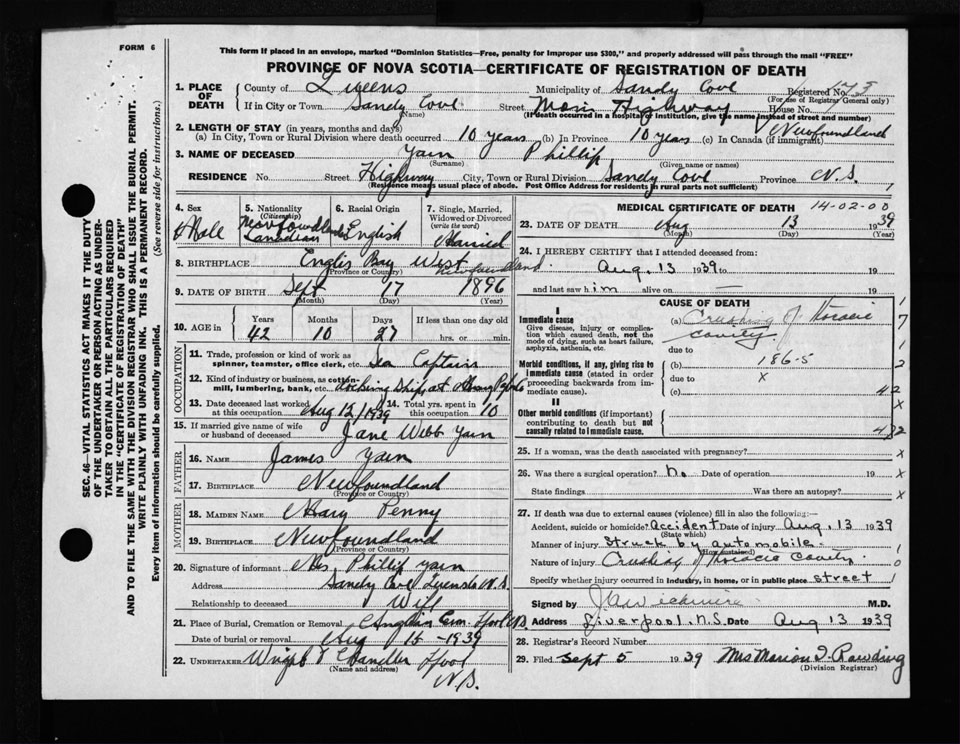 FORM 6
This form if placed in an envelope, marked "Dominion Statistics—Free, penalty for improper use $300," and properly addressed will pass through the mail "FREE"
PROVINCE OF NOVA SCOTIA—CERTIFICATE OF REGISTRATION OF DEATH
1. PLACE OF DEATH County of Queens Municipality of Sandy Cove Registered No.
(For use of Registrar General only)
If in City or Town Sandy Cove Street Main Highway House No.
(Name) (If death occurred in a hospital or institution, give the name instead of street and number)
2. LENGTH OF STAY (in years, months and days)
(a) In City, Town or Rural Division where death occurred 10 years (b) In Province 10 years (c) In Canada (if immigrant) Newfoundland
3. NAME OF DECEASED Yarn Phillip
(Surname) (Given name or names)
RESIDENCE No. Street Highway City, Town or Rural Division Sandy Cove Province N.S.
(Residence means usual place of abode. Post Office Address for residents in rural parts not sufficient)
4. Sex Male
5. Nationality (Citizenship) Newfoundlander Canadian
6. Racial Origin English
7. Single, Married, Widowed or Divorced (write the word) Married
8. BIRTHPLACE Englis Bay West Newfoundland
(Province or Country)
9. DATE OF BIRTH Sept 17 1896
(Month) (Day) (Year)
10. AGE in Years Months Days If less than one day old
42 10 27 hrs. or min.
OCCUPATION
11. Trade, profession or kind of work as spinner, teamster, office clerk, etc. Sea Captain
12. Kind of industry or business, as cotton-mill, lumbering, bank, etc.
13. Date deceased last worked at this occupation Aug 12/1939 14. Total yrs. spent in this occupation 10
15. If married give name of wife or husband of deceased Jane Webb Yarn
FATHER
16. NAME James Yarn
17. BIRTHPLACE Newfoundland
(Province or Country)
MOTHER
18. MAIDEN NAME Mary Penny
19. BIRTHPLACE Newfoundland
(Province or Country)
20. Signature of informant Mrs. Phillip Yarn
Address Sandy Cove Queens Co N.S.
Relationship to deceased Wife
21. Place of Burial, Cremation or Removal Anglican Cem. L'pool N.S.
Date of burial or removal Aug 15-1939
22. UNDERTAKER Wright & Chandler L'pool
(Name and address)
N.S.
MEDICAL CERTIFICATE OF DEATH 14-02-00
23. DATE OF DEATH Aug 13 1939
(Month) (Day)
24. I HEREBY CERTIFY that I attended deceased from:
Aug. 13 1939 to 19
and last saw him alive on — 19
CAUSE OF DEATH
I
Immediate cause (a) Crushing of thoracic cavity.
Give disease, injury or complication which caused death, not the mode of dying, such as heart failure, asphyxia, asthenia, etc.
due to
Morbid conditions, if any, giving rise to immediate cause (stated in order proceeding backwards from immediate cause).
(b) 186-5
due to x
(c)
II
Other morbid conditions (if important) contributing to death but not causally related to immediate cause.
25. If a woman, was the death associated with pregnancy?
26. Was there a surgical operation? No. Date of operation 19
State findings Was there an autopsy?
27. If death was due to external causes (violence) fill in also the following:
Accident, suicide or homicide? Accident Date of injury Aug. 13 1939
(State which)
Manner of injury Struck by automobile.
(How sustained)
Nature of injury Crushing of thoracic cavity.
Specify whether injury occurred in industry, in home, or in public place street
Signed by M.D.
Address Liverpool, N.S. Date Aug 13 1939
28. Registrar's Record Number
29. Filed Sept 5 1939 Mrs Marion I. Rawding
(Division Registrar)
SEC. 46—VITAL STATISTICS ACT MAKES IT THE DUTY
OF THE UNDERTAKER OR PERSON ACTING AS UNDER-
TAKER TO OBTAIN ALL THE PARTICULARS REQUIRED
IN THE "CERTIFICATE OF REGISTRATION OF DEATH"
AND TO FILE THE SAME WITH THE DIVISION REGISTRAR WHO SHALL ISSUE THE BURIAL PERMIT.
WRITE PLAINLY WITH UNFADING INK. THIS IS A PERMANENT RECORD.
Every item of information should be carefully supplied. (See reverse side for instructions.)